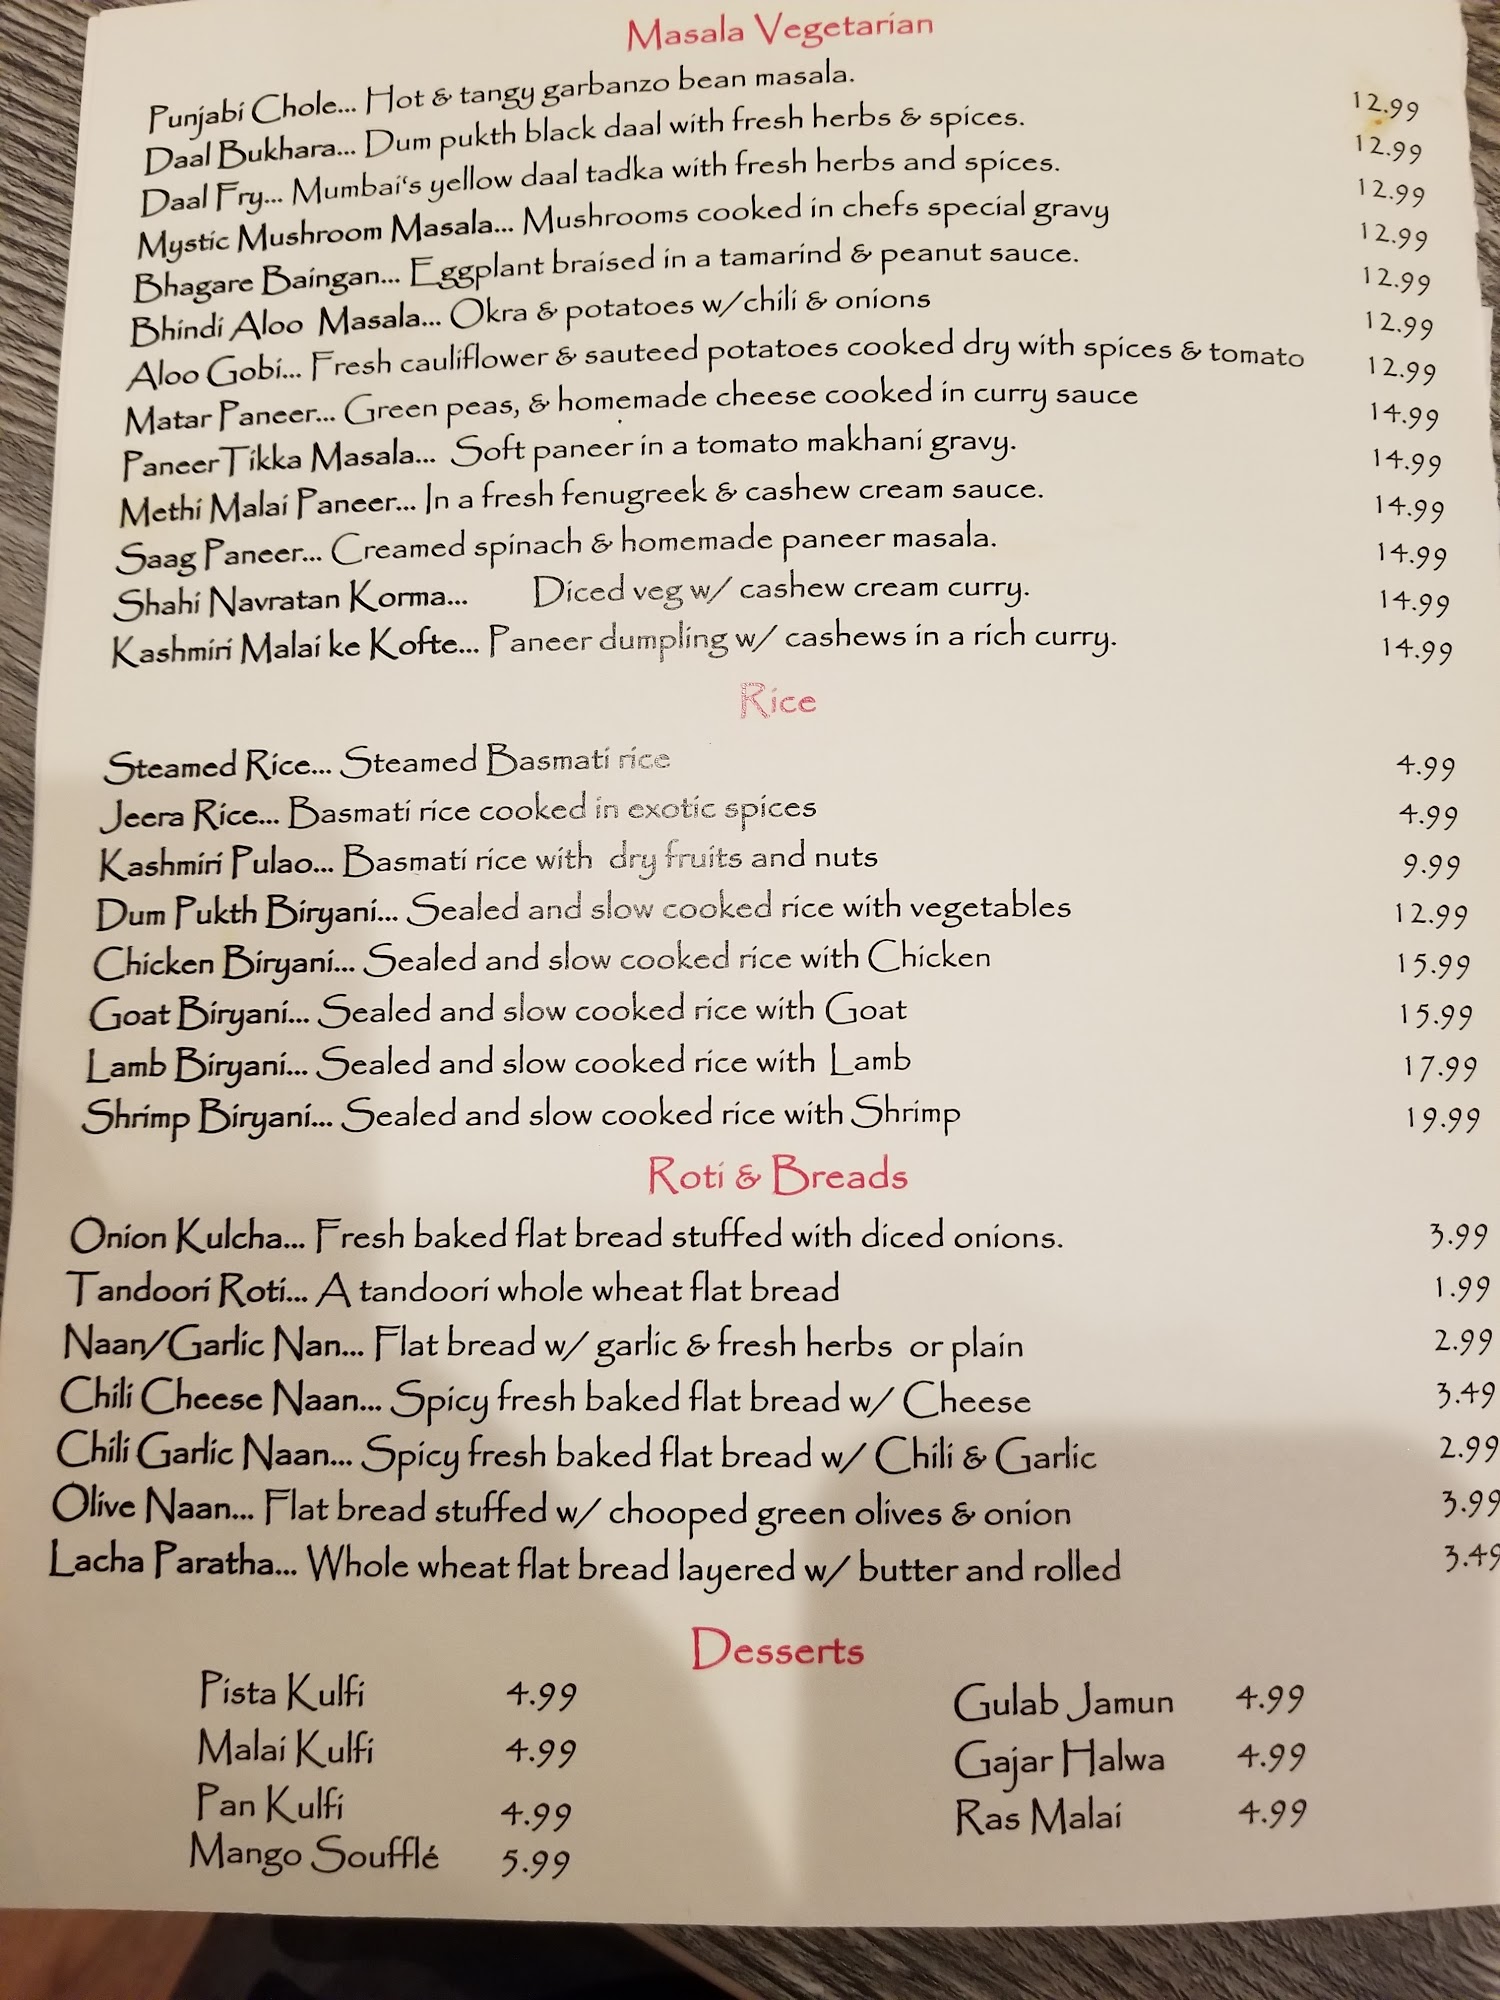 Masala Vegetarian
Punjabi Chole... Hot & tangy garbanzo bean masala. 12.99
Daal Bukhara... Dum pukth black daal with fresh herbs & spices. 12.99
Daal Fry... Mumbai's yellow daal tadka with fresh herbs and spices. 12.99
Mystic Mushroom Masala... Mushrooms cooked in chefs special gravy 12.99
Bhagare Baingan... Eggplant braised in a tamarind & peanut sauce. 12.99
Bhindi Aloo Masala... Okra & potatoes w/chili & onions 12.99
Aloo Gobi... Fresh cauliflower & sauteed potatoes cooked dry with spices & tomato 12.99
Matar Paneer... Green peas, & homemade cheese cooked in curry sauce 14.99
Paneer Tikka Masala... Soft paneer in a tomato makhani gravy. 14.99
Methi Malai Paneer... In a fresh fenugreek & cashew cream sauce. 14.99
Saag Paneer... Creamed spinach & homemade paneer masala. 14.99
Shahi Navratan Korma... Diced veg w/ cashew cream curry. 14.99
Kashmiri Malai ke Kofte... Paneer dumpling w/ cashews in a rich curry. 14.99
Rice
Steamed Rice... Steamed Basmati rice 4.99
Jeera Rice... Basmati rice cooked in exotic spices 4.99
Kashmiri Pulao... Basmati rice with dry fruits and nuts 9.99
Dum Pukth Biryani... Sealed and slow cooked rice with vegetables 12.99
Chicken Biryani... Sealed and slow cooked rice with Chicken 15.99
Goat Biryani... Sealed and slow cooked rice with Goat 15.99
Lamb Biryani... Sealed and slow cooked rice with Lamb 17.99
Shrimp Biryani... Sealed and slow cooked rice with Shrimp 19.99
Roti & Breads
Onion Kulcha... Fresh baked flat bread stuffed with diced onions. 3.99
Tandoori Roti... A tandoori whole wheat flat bread 1.99
Naan/Garlic Nan... Flat bread w/ garlic & fresh herbs or plain 2.99
Chili Cheese Naan... Spicy fresh baked flat bread w/ Cheese 3.49
Chili Garlic Naan... Spicy fresh baked flat bread w/ Chili & Garlic 2.99
Olive Naan... Flat bread stuffed w/ chooped green olives & onion 3.99
Lacha Paratha... Whole wheat flat bread layered w/ butter and rolled 3.49
Desserts
Pista Kulfi 4.99 Gulab Jamun 4.99
Malai Kulfi 4.99 Gajar Halwa 4.99
Pan Kulfi 4.99 Ras Malai 4.99
Mango Soufflé 5.99